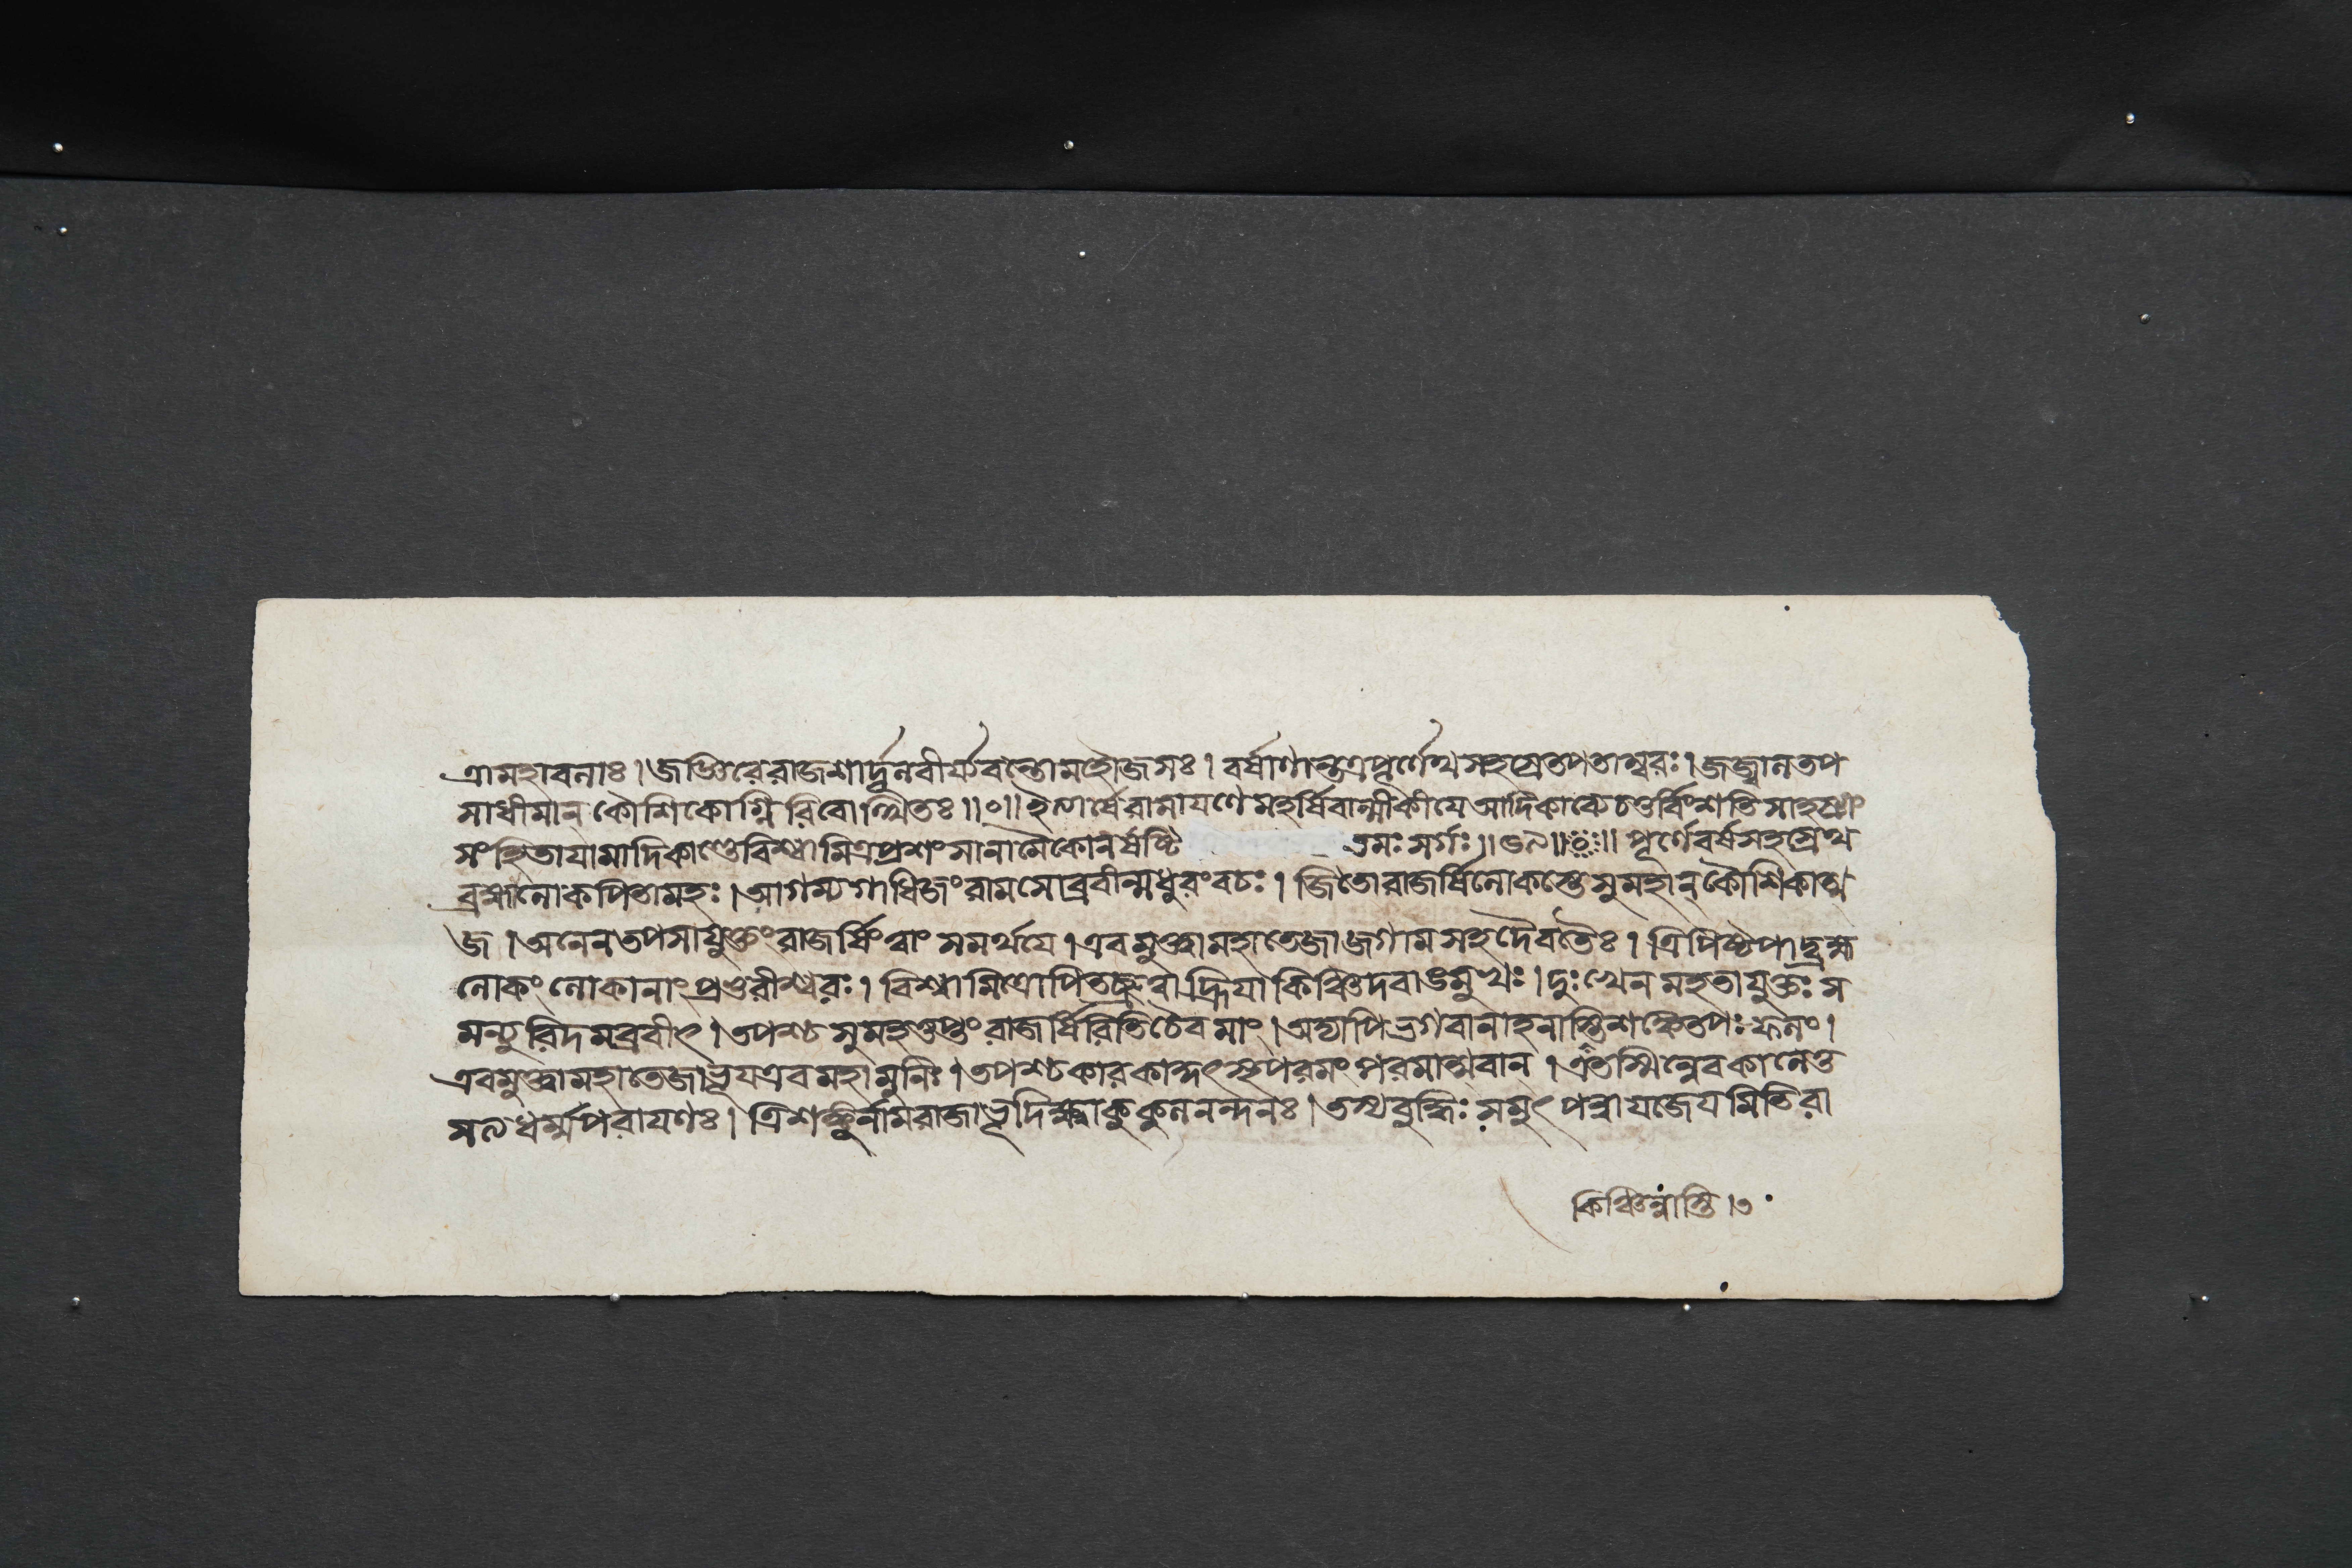 ত্রামহাবলাঃ। জজ্ঞিরেরাজশার্দ্দূলবীর্য্যবন্তোমহৌজসঃ। বর্ষাণান্তত্রপূর্ণেথসহস্রেতপতাম্বরঃ। জজ্বালতপ
সাধীমান্ কৌশিকোগ্নিরিবোত্থিতঃ॥০॥ ইত্যার্ষেরামাযণেমহর্ষিবাল্মীকীযেআদিকাব্যেচতুর্বিংশতিসাহস্র্যাং
সংহিতাযামাদিকাণ্ডেবিশ্বামিত্রপ্রশংসানামৈকোনর্ষষ্টি তমঃসর্গঃ॥৫৯॥০॥ পূর্ণেবর্ষসহস্রেথ
ব্রহ্মালোকপিতামহঃ। আগম্যগাধিজংরামসোব্রবীন্মধুরংবচঃ। জিতোরাজর্ষিলোকস্তেসুমহান্ কৌশিকাত্ম
জ। অনেনতপসাযুক্তংরাজর্ষিংত্বাং সমর্থযে। এবমুক্ত্বামহাতেজাজগামসহদৈবতৈঃ। ত্রিপিষ্টপাদ্ব্রহ্ম
লোকং লোকানাং প্রভুরীশ্বরঃ। বিশ্বামিত্রোপিতচ্ছ্রুত্বাহ্রিযাকিঞ্চিদবাঙমুখঃ। দুঃখেন মহতাযুক্তঃ স
মন্যুরিদমব্রবীৎ। তপশ্চ সুমহত্তপ্তং রাজর্ষিরিতিচৈবমাং। অদ্যাপিভগবানাহনাস্তিশঙ্কেতপঃফলং।
এবমুক্ত্বামহাতেজাভূযএবমহামুনিঃ। তপশ্চকারকাকুৎস্থপরমং পরমাত্মবান্। এতস্মিন্নেবকালেতু
সত্যধর্ম্মপরাযণঃ। ত্রিশঙ্কুর্নামরাজাভূদিক্ষ্বাকুকুলনন্দনঃ। তস্যবুদ্ধিঃ সমুৎপন্নাযজেযমিতিরা
কিঞ্চিন্নাস্তি।৩